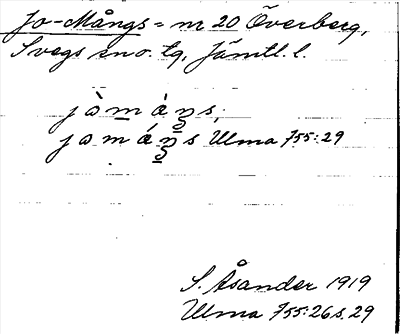 Jo-Mångs = nr 20 Överberg,
Svegs sn o. tg, Jämtl. l.
jòmàŋs,
jomáŋs Ulma 755:29
S. Åsander 1919
Ulma 755:26 s. 29